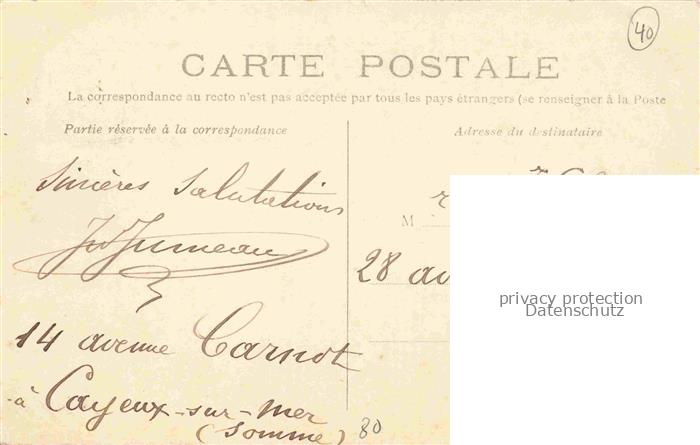 40
CARTE POSTALE
La correspondance au recto n'est pas acceptée par tous les pays étrangers (se renseigner à la Poste
Partie réservée à la correspondance
Adresse du destinataire
Sincères Salutations
M
Jumeau
28 av
14 avenue Carnot
à Cayeux-sur-mer
(Somme)
80
privacy protection
Datenschutz